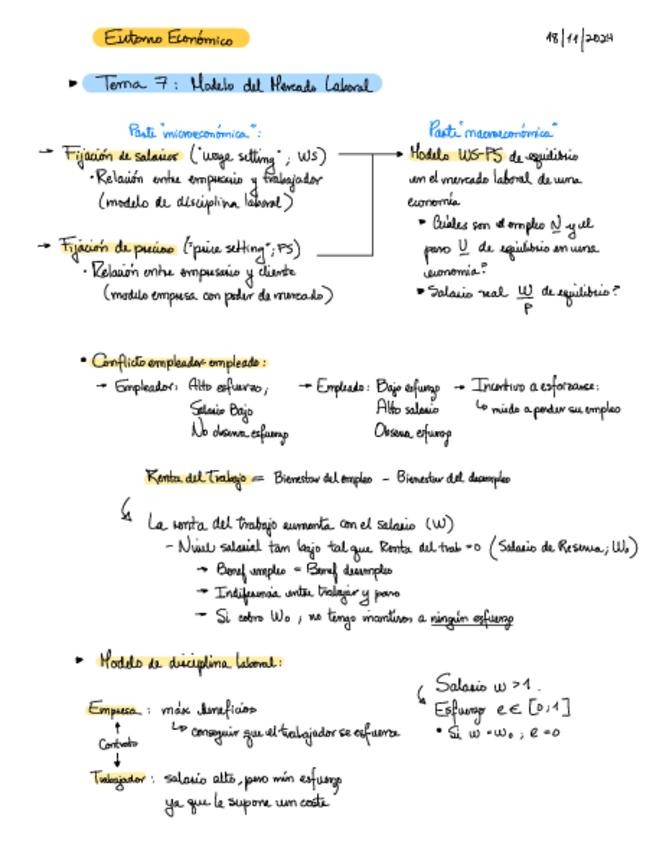 Entorno Económico
18/11/2024
▸ Tema 7: Modelo del Mercado Laboral
Parte "microeconómica":
→ Fijación de salarios ("wage setting"; WS)
· Relación entre empresario y trabajador
(modelo de disciplina laboral)
→ Fijación de precios ("price setting"; PS)
· Relación entre empresario y cliente
(modelo empresa con poder de mercado)
Parte "macroeconómica"
Modelo WS-PS de equilibrio
en el mercado laboral de una
economía
▸ Cuáles son el empleo N y el
paro U de equilibrio en una
economía?
▸ Salario real W/P de equilibrio?
• Conflicto empleador-empleado:
→ Empleador: Alto esfuerzo;
Salario Bajo
No observa esfuerzo
→ Empleado: Bajo esfuerzo
Alto salario
Observa esfuerzo
→ Incentivo a esforzarse:
↳ miedo a perder su empleo
Renta del Trabajo = Bienestar del empleo - Bienestar del desempleo
La renta del trabajo aumenta con el salario (W)
- Nivel salarial tan bajo tal que Renta del trab = 0 (Salario de Reserva; W₀)
→ Benef empleo = Benef desempleo
→ Indiferencia entre trabajar y paro
→ Si cobro W₀, no tengo incentivos a ningún esfuerzo
▸ Modelo de disciplina laboral:
Empresa: máx beneficios
↳ conseguir que el trabajador se esfuerce
Contrato
Trabajador: salario alto, pero mín esfuerzo
ya que le supone un coste
Salario w > 1.
Esfuerzo e ∈ [0,1]
• Si w = w₀; e = 0